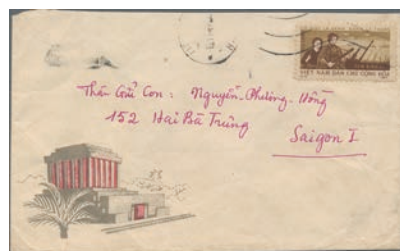 VIỆT NAM DÂN CHỦ CỘNG HÒA
Thân Gửi Con : Nguyễn-Phương-Hồng
152 Hai Bà Trưng
Saigon I